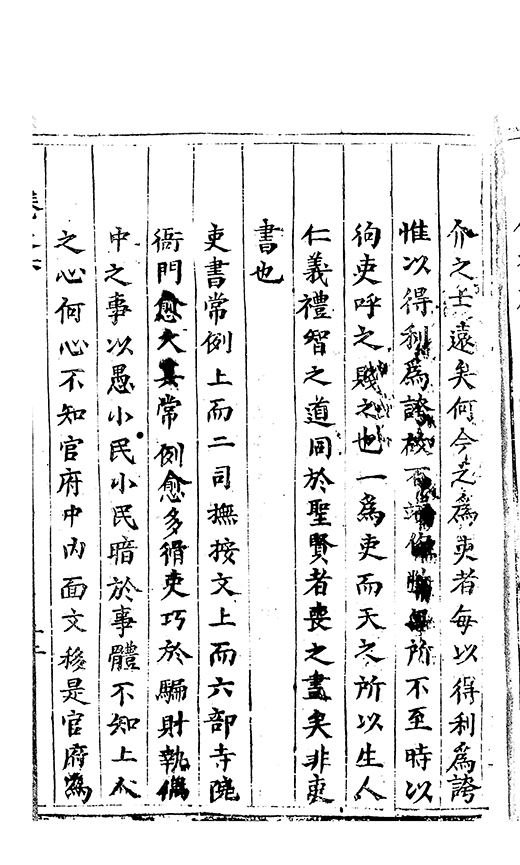 介之士遠矣何今之為吏者每以得利為誇
惟以得利為誇故百端作弊無所不至時以
徇吏呼之賤之也一為吏而天之所以生人
仁義禮智之道同於聖賢者喪之盡矣非吏
書也
吏書常例上而二司撫按文上而六部寺院
衙門愈大其常例愈多猾吏巧於騙財執偽
中之事以愚小民小民暗於事體不知上人
之心何心不知官府中內面文移是官府為
卷之六